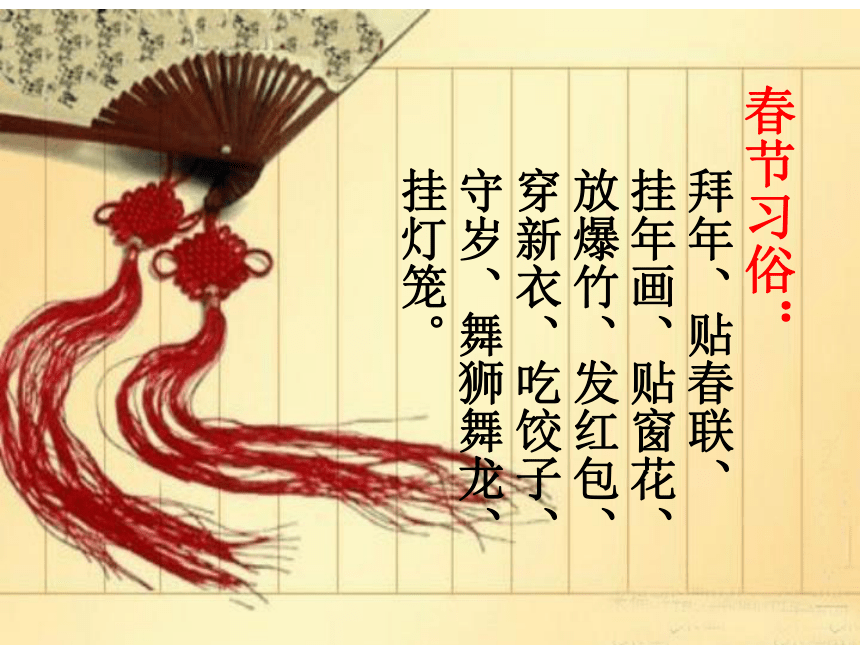 春节习俗：
拜年、贴春联、
挂年画、贴窗花、
放爆竹、发红包、
穿新衣、吃饺子、
守岁、舞狮舞龙、
挂灯笼。